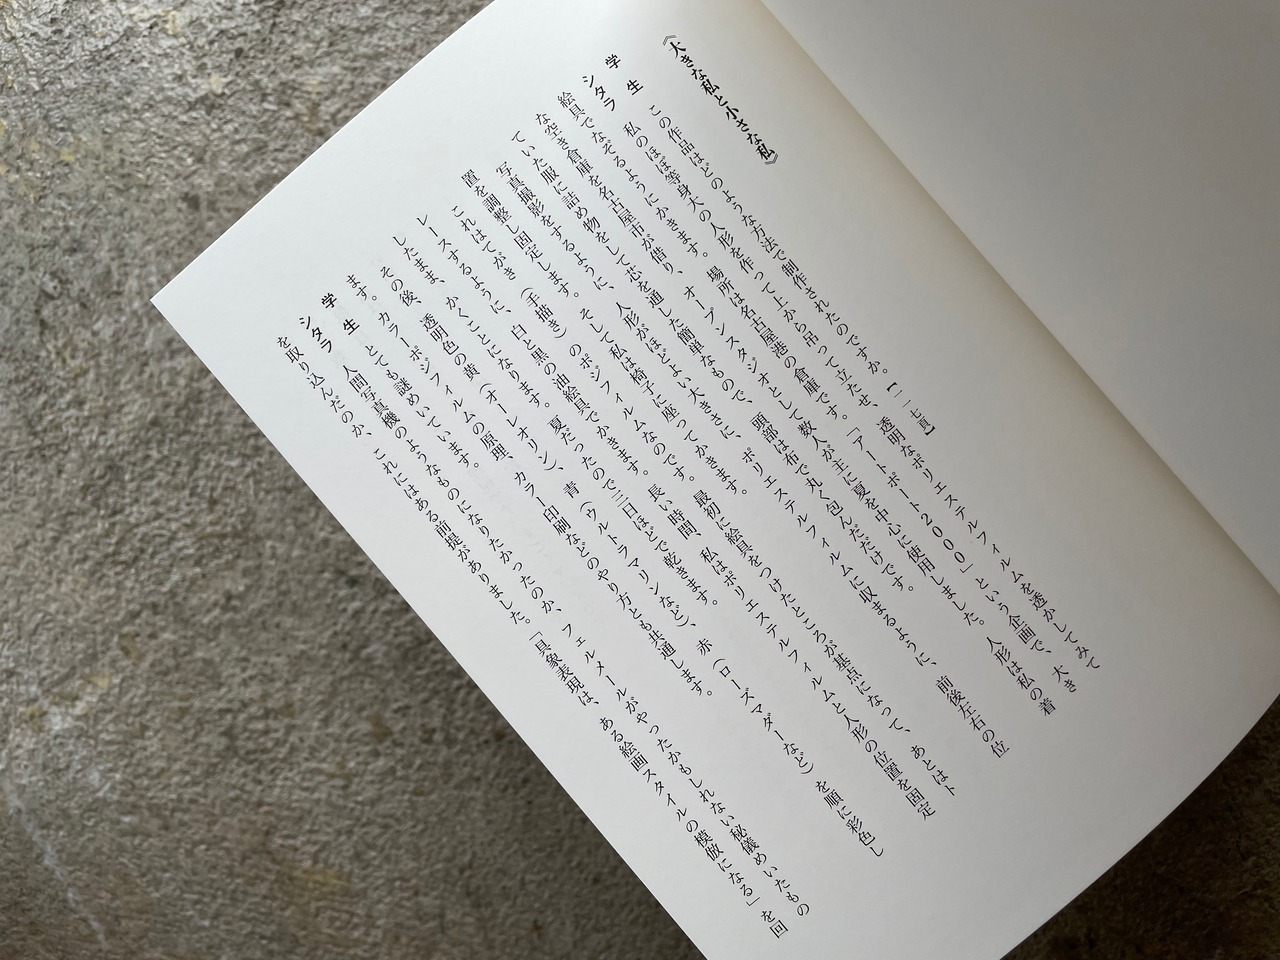 《大きな私と小さな私》
学生　この作品はどのような方法で制作されたのですか。【一一七頁】
シタラ　私のほぼ等身大の人形を作って上から吊って立たせ、透明なポリエステルフィルムを透かしてみて
絵具でなぞるようにかきます。場所は名古屋港の倉庫です。「アートポート2000」という企画で、大き
な空き倉庫を名古屋市が借り、オープンスタジオとして数人が主に夏を中心に使用しました。人形は私の着
ていた服に詰め物をして芯を通した簡単なもので、頭部は布で丸く包んだだけです。
写真撮影をするように、人形がほどよい大きさに、ポリエステルフィルムに収まるように、前後左右の位
置を調整し固定します。そして私は椅子に座ってかきます。
これはてがき（手描き）のポジフィルムなのです。最初に絵具をつけたところが基点になって、あとはト
レースするように、白と黒の油絵具でかきます。長い時間、私はポリエステルフィルムと人形の位置を固定
したまま、かくことになります。夏だったので三日ほどで乾きます。
その後、透明色の黄（オーレオリン）、青（ウルトラマリンなど）、赤（ローズマダーなど）を順に彩色し
ます。カラーポジフィルムの原理、カラー印刷などのやり方とも共通します。
学生　とても謎めいています。
シタラ　人間写真機のようなものになりたかったのか、フェルメールがやったかもしれない秘儀めいたもの
を取り込んだのか、これにはある前提がありました。「具象表現は、ある絵画スタイルの模倣になる」を回